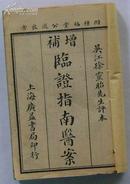 吳江徐靈胎先生評本
增補
臨證指南醫案
上海廣益書局印行